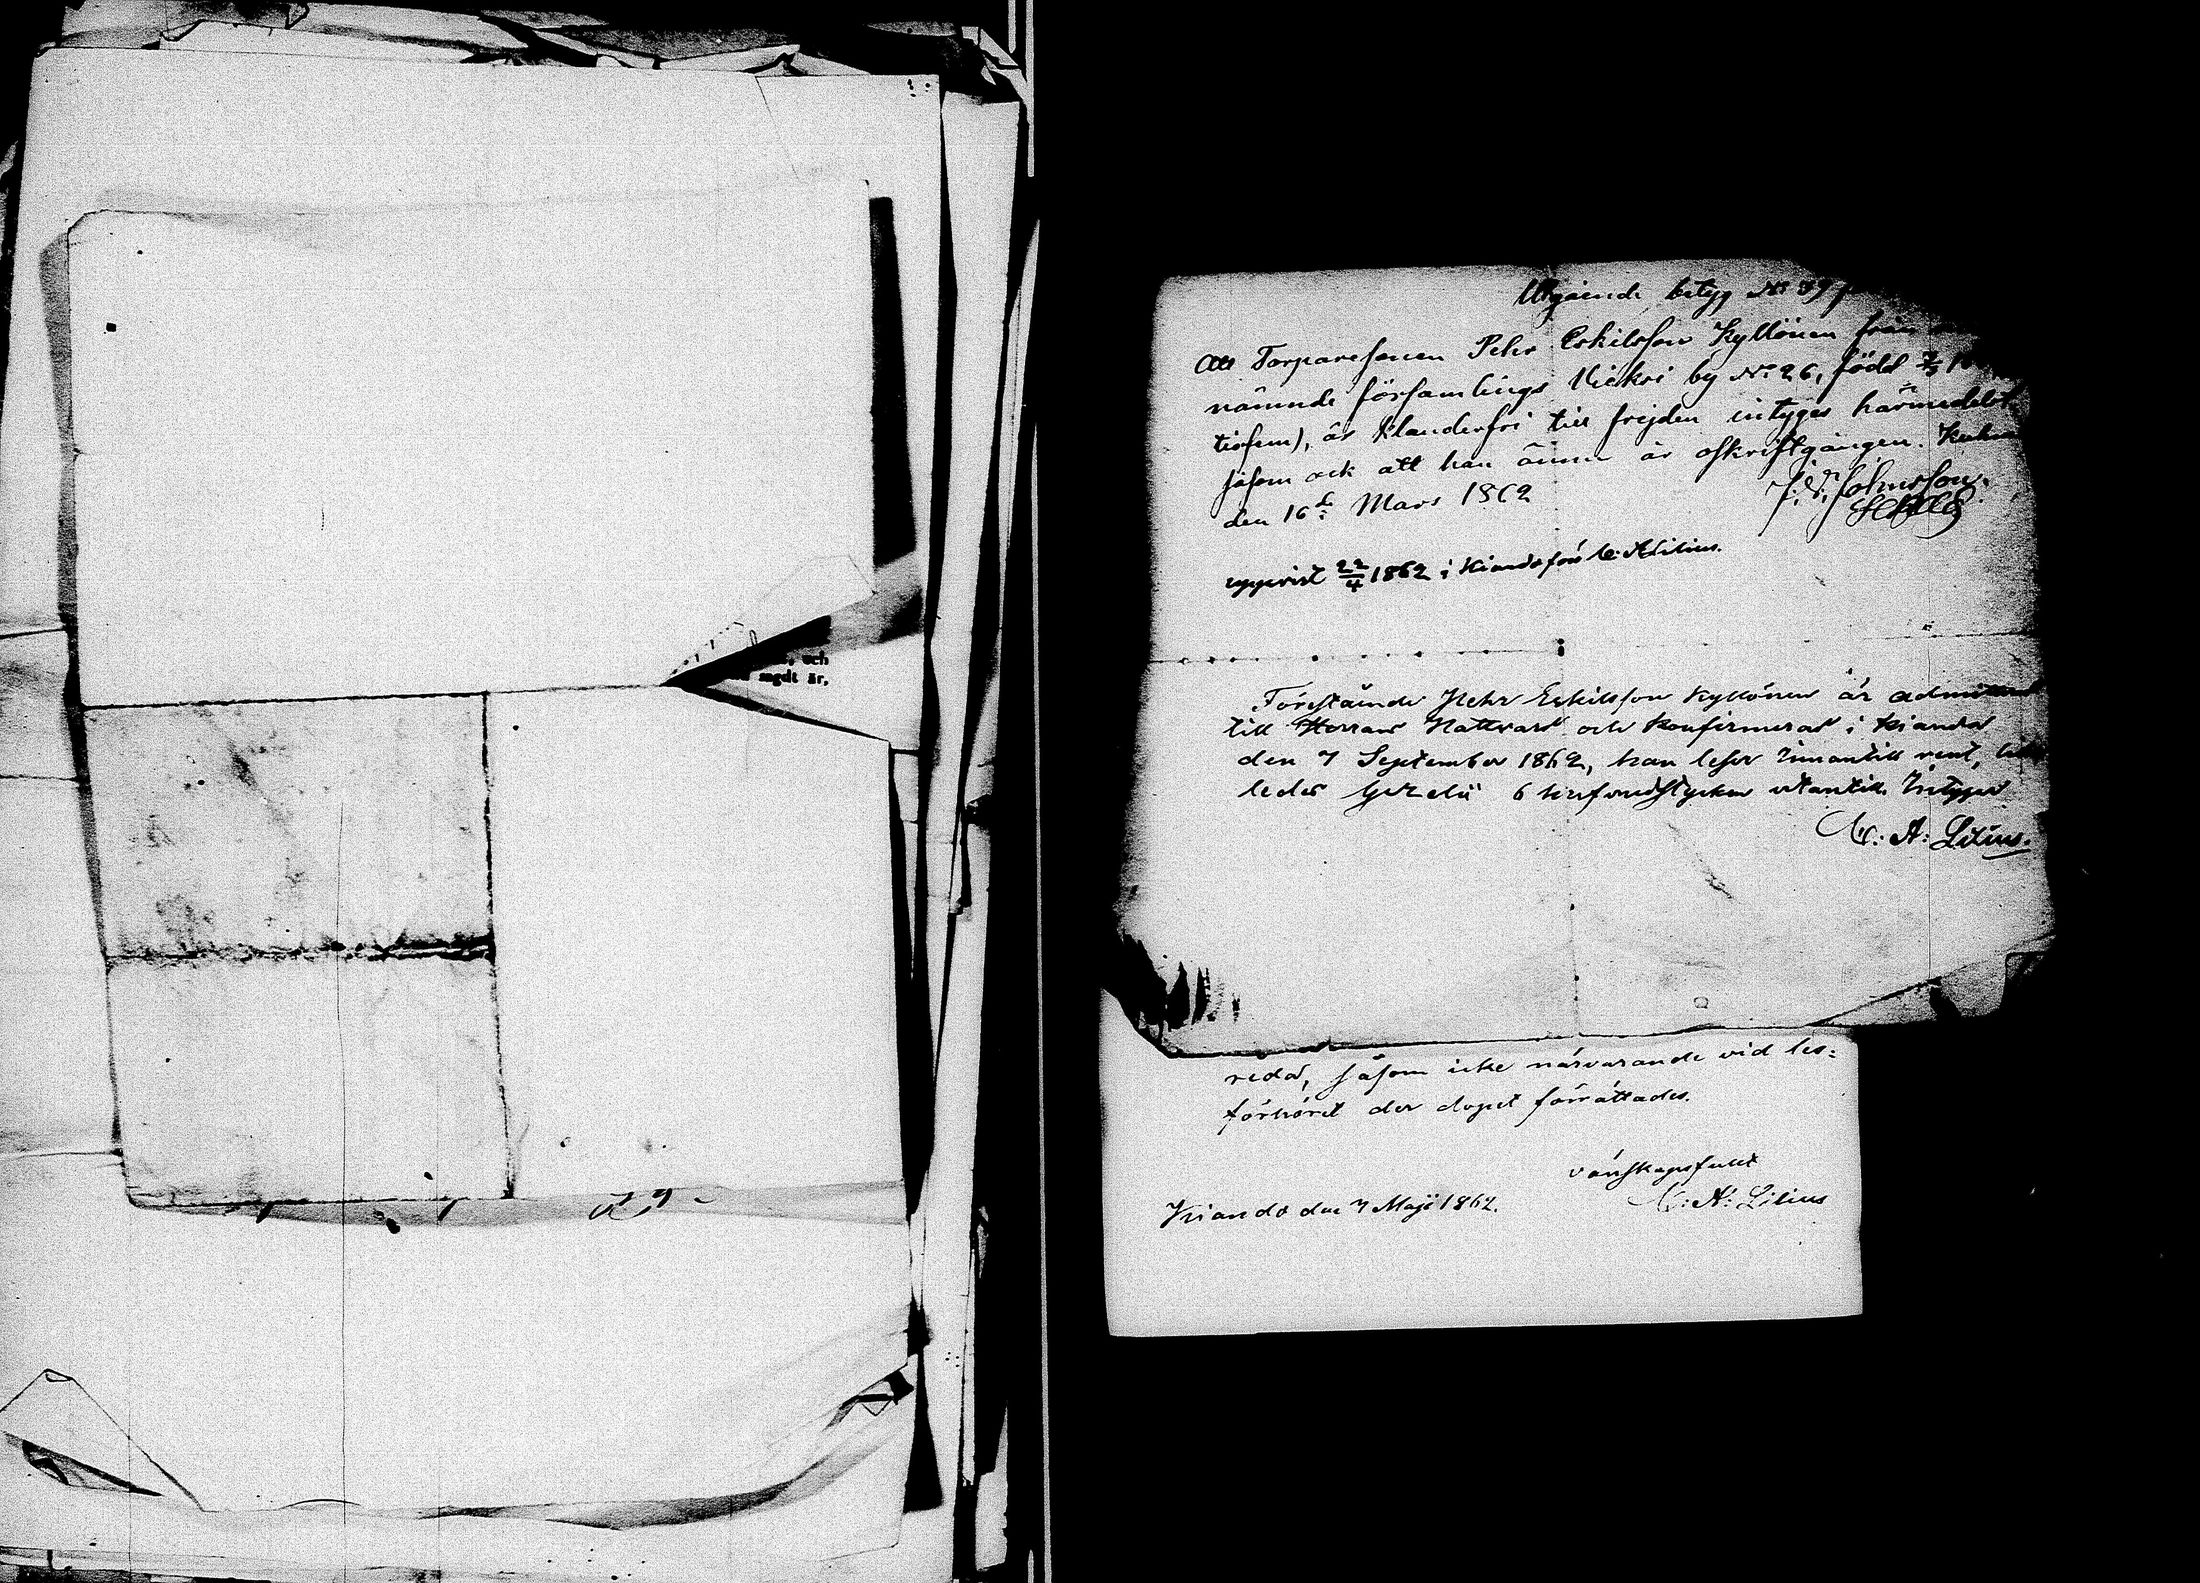 och
sagdt är,
Utgående betyg No 39
Att Torparesonen Pehr Eskilsson Kyllönen från
nämnde församlings Vieksi by No 26, född
tiofem), är klanderfri till frejden intygas härmedelst
såsom ock att han ännu är oskriftgången. Kuhmo
den 16d: Mars 1862
J. F. Johnsson.
uppvist 22/4 1862 i Kianda för C: A Lilius.
Förestående Pehr Eskilsson Kyllönen är admitterad
till Herrans Nattvard och Konfirmerad i Kianda
den 7 September 1862, han läser innantill rent,
ledes 6 hufvudstycken utantill. Intygar
C: A: Lilius.
reda, såsom icke närvarande vid läs=
förhöret der dopet förrättades.
vänskapsfullt
C: A: Lilius
Kianda den 7 Maji 1862.